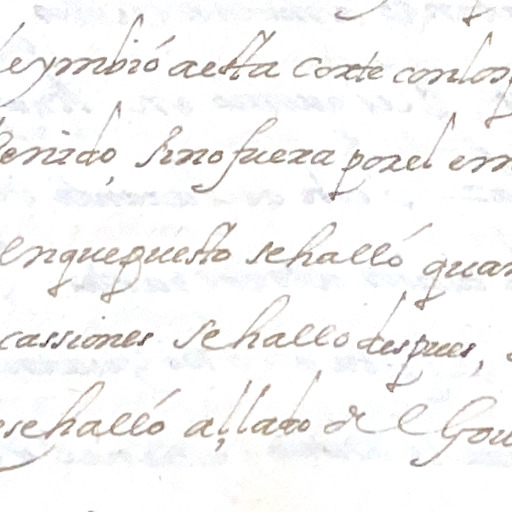 le ymbió aesta Corte con los
Venido, sino fuera por el em
en que puesto se halló quan
cassiones se hallo despues,
se halló al lado del Gou